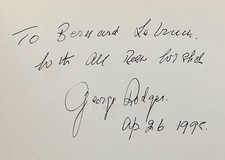 To Bernard Lebrun.
With All Good Wishes
George Rodger.
Ap. 26 199